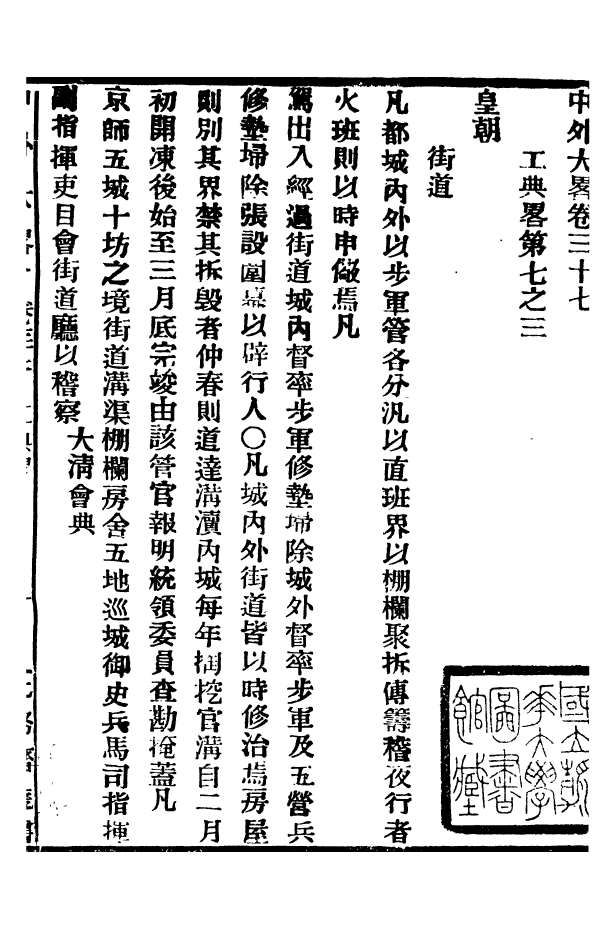 中外大畧卷三十七
工典畧第七之三
皇朝
街道
凡都城內外以步軍管各分汛以直班界以棚欄聚柝傳籌稽夜行者
火班則以時申儆焉凡
駕出入經過街道城內督率步軍修墊埽除城外督率步軍及五營兵
修墊埽除張設圍幕以辟行人〇凡城內外街道皆以時修治焉房屋
則別其界禁其拆毀者仲春則道達溝瀆內城每年掏挖官溝自二月
初開凍後始至三月底完竣由該管官報明統領委員查勘掩蓋凡
京師五城十坊之境街道溝渠棚欄房舍五地巡城御史兵馬司指揮
副指揮吏目會街道廳以稽察
大淸會典
國立
大學
圖書
館藏